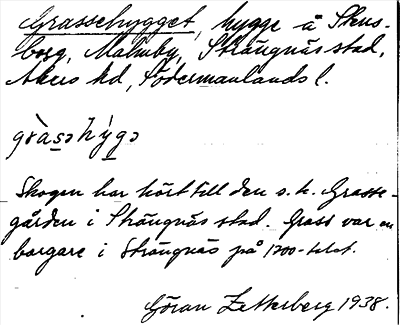 Grassehygget, hygge å Skens-
borg, Malmby, Strängnäs stad,
Åkers hd, Södermanlands l.
gràsə hýgə
Skogen har hört till den s. k. Grasse-
gården i Strängnäs stad. Grass var en
borgare i Strängnäs på 1700-talet.
Göran Zetterberg 1938.